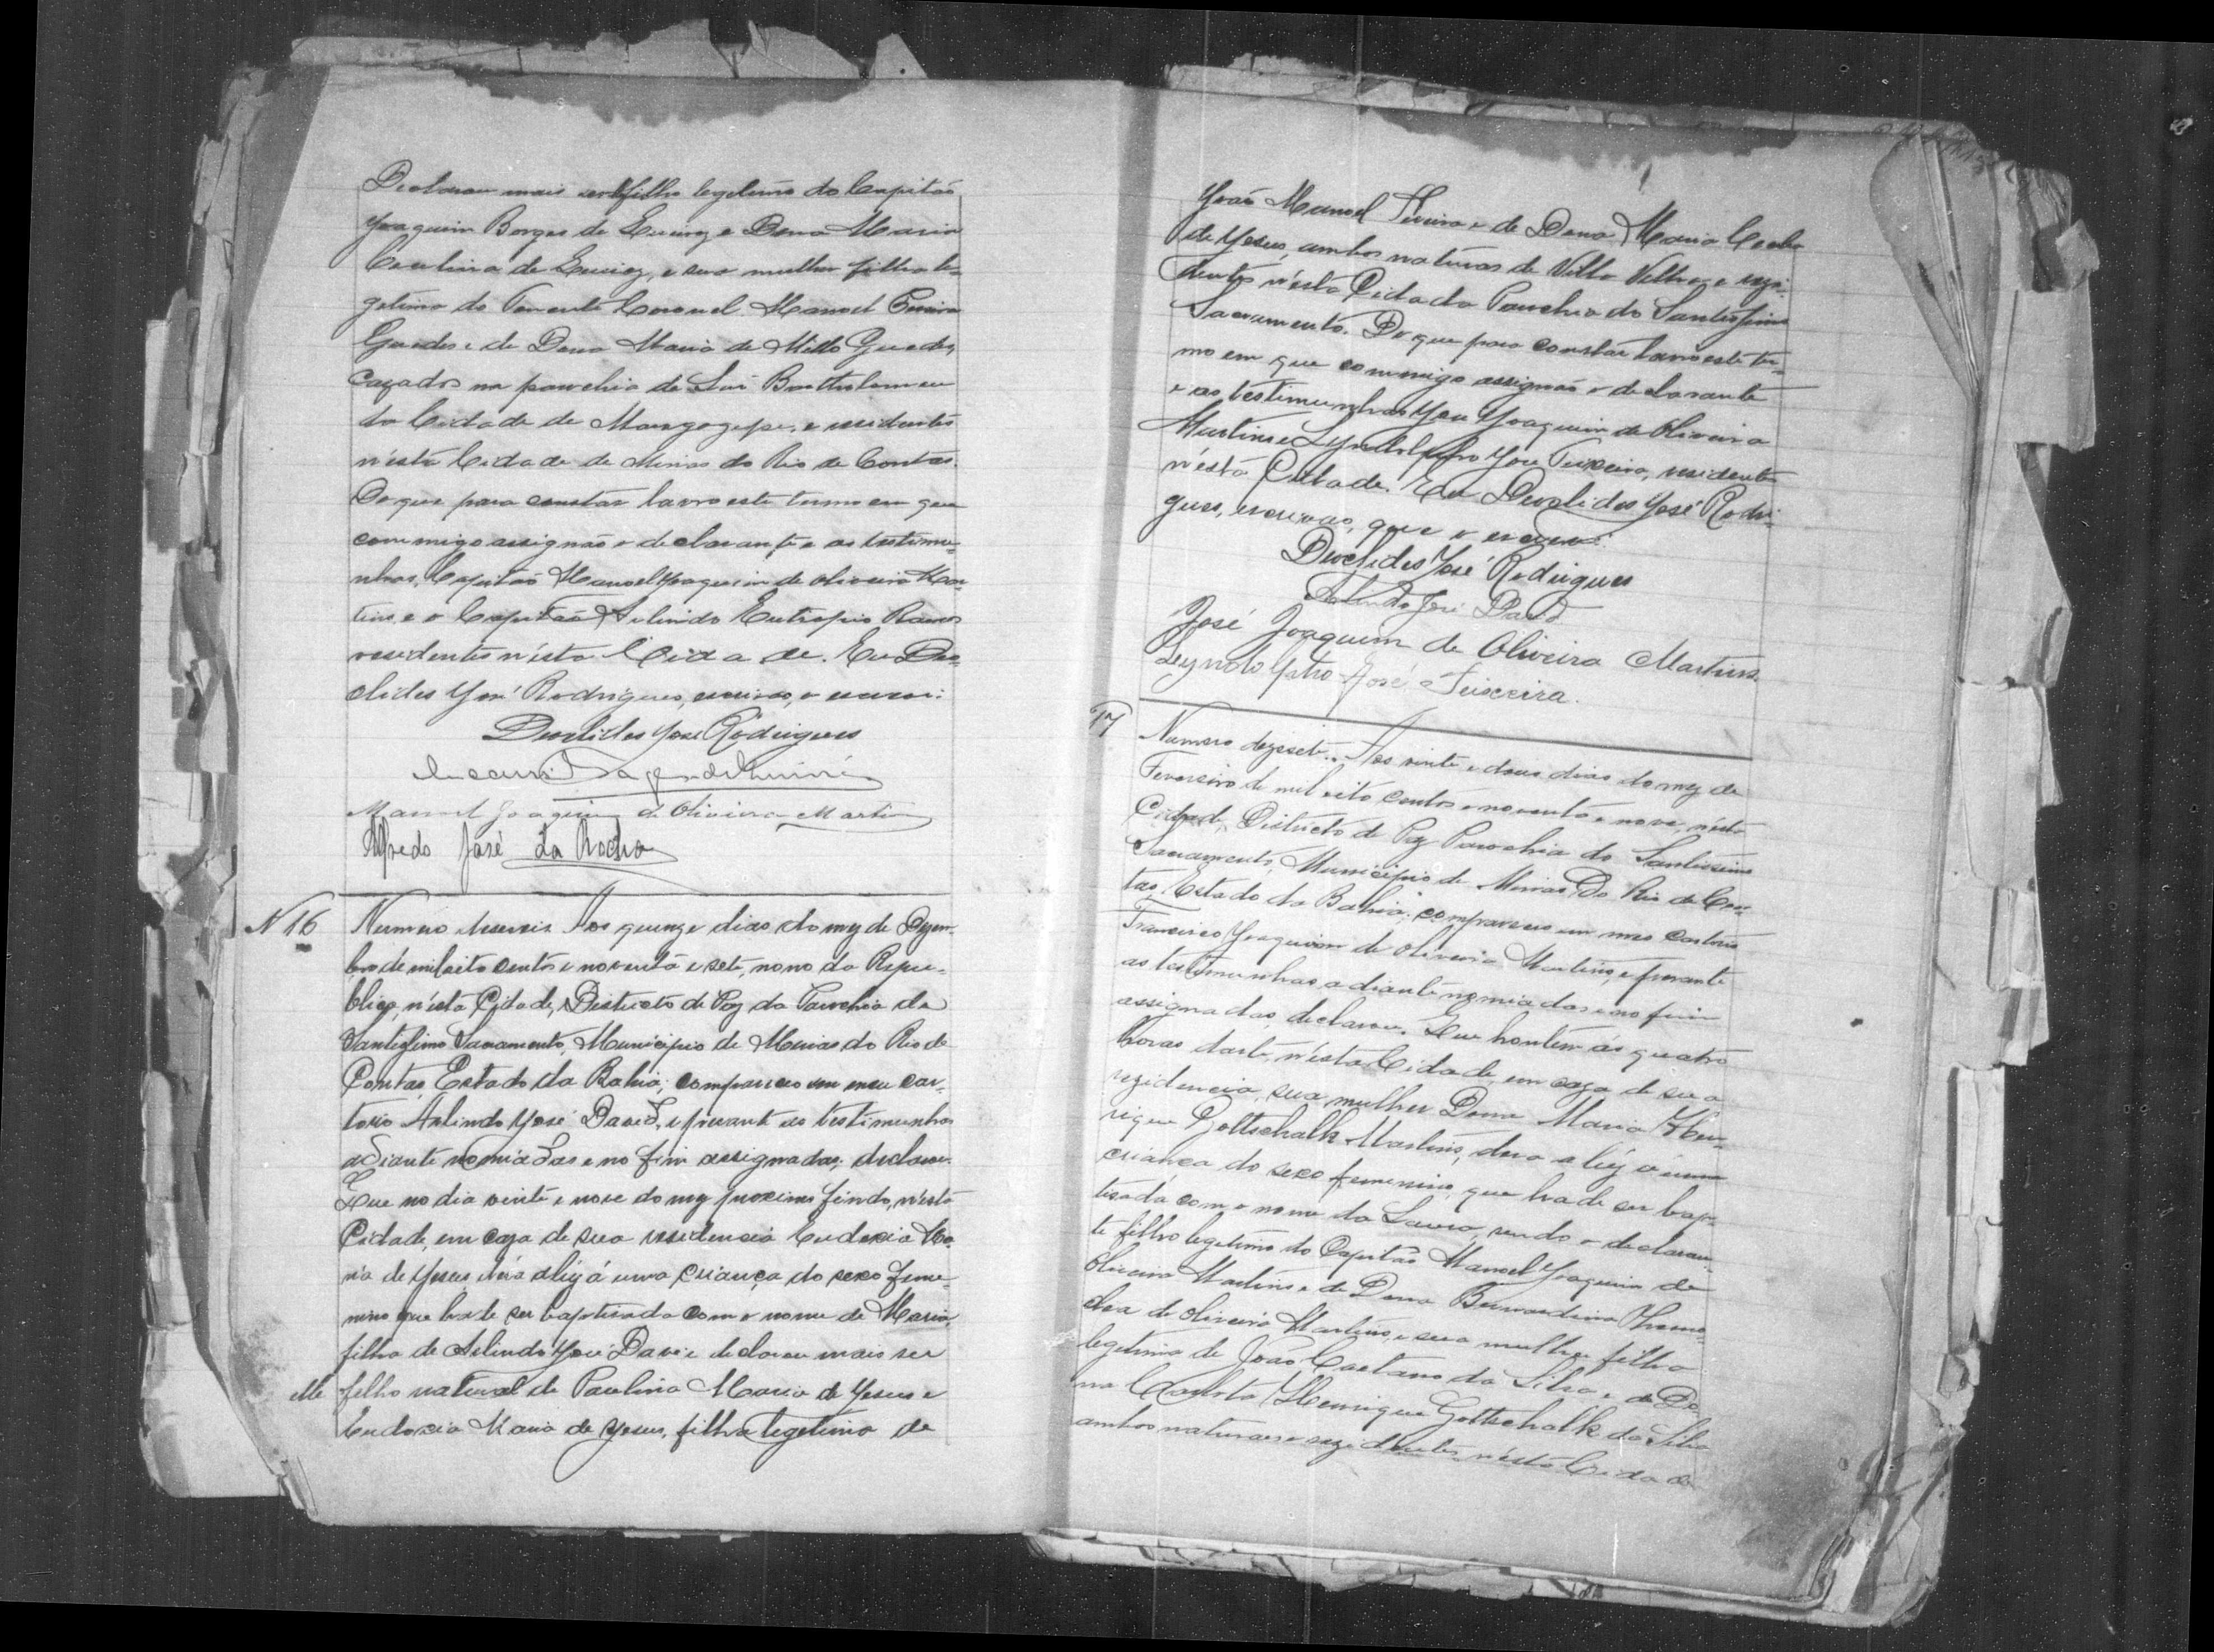 Declarou mais ser filho legitimo do Capitão
Joaquim Borges de e Dona Maria
Carolina de e sua mulher filha le-
getima do Tenente Coronel Manoel Pereira
Guedes e de Dona Maria de Mello Guedes,
cazados na parochia de São Bartholomeu
da Cidade de Maragogipe, e residentes
n'esta Cidade de Minas do Rio de Contas.
Do que para constar lavro este termo em que
commigo assignão o declarante e as testimu-
nhas, Capitão Manoel Joaquim de Oliveira Mar-
tins e o Capitão Eutropio
residentes n'esta Cidade. Eu Deo-
clides José Rodrigues, escrivão, o escrevi.
Deoclides José Rodrigues
Manoel Joaquim de Oliveira Martins
Alfredo José da Rocha
N 16
Numero deseseis. Aos quinze dias do mez de Dezem-
bro de mil oito centos e noventa e sete, nono da Repu-
blica, n'esta Cidade, Districto de Paz da Parochia do
Santissimo Sacramento, Municipio de Minas do Rio de
Contas, Estado da Bahia, compareceo em meu car-
torio Arlindo José David, e perante as testimunhas
adiante nomiadas e no fim assignadas, declarou
Que no dia vinte e nove do mez proximo findo, n'esta
Cidade, em caza de sua residencia Eudoxia Ma-
ria de Jesus dera a luz á uma criança do sexo feme-
nino que ha de ser baptisada com o nome de Maria,
filha de Arlindo José David e declarou mais ser
filho natural de Paulina Maria de Jesus e
Eudoxia Maria de Jesus, filha legetima de
João Manoel e de Dona Maria
de Jesus, ambos naturaes de Villa Velha, e rezi-
dentes n'esta Cidade da Parochia do Santissimo
Sacramento. Do que para constar lavro este ter-
mo em que commigo assignão o declarante
e as testimunhas José Joaquim de Oliveira
Martins e Lyndolpho José Teixeira, residentes
n'esta Cidade. Eu Deoclides José Rodri-
gues, escrivão, que o escrevi.
Deoclides José Rodrigues
Arlindo José David
José Joaquim de Oliveira Martins
Lyndolpho José Teixeira.
17
Numero dezesete. Aos vinte e dous dias do mez de
Fevereiro de mil oito centos e noventa e nove, n'esta
Cidade, Districto de Paz Parochia do Santissimo
Sacramento, Municipio de Minas do Rio de Con-
tas, Estado da Bahia, compareceo em meu cartorio
Francisco Joaquim de Oliveira Martins, e perante
as testimunhas adiante nomiadas e no fim
assignadas, declarou. Que hontem ás quatro
horas da tarde, n'esta Cidade, em caza de sua
rezidencia, sua mulher Dona Maria Hen-
rique Gottschalk Martins, dera a luz á uma
criança do sexo femenino, que ha de ser bap-
tisada com o nome de Laura, sendo o declaran-
te filho legetimo do Capitão Manoel Joaquim de
Oliveira Martins e de Dona Bernardina
de Oliveira Martins, e sua mulher filha
legetima de João Caetano da Silva e de Do-
na Carlota Henrique Gottschalk da Silva
ambos naturaes e rezidentes n'esta Cidade